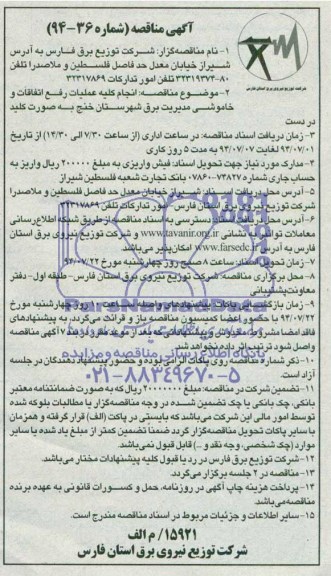 آگهی مناقصه (شماره ۳۶-۹۴)
شرکت توزیع نیروی برق استان فارس
۱- نام مناقصه‌گزار: شرکت توزیع برق فارس به آدرس
شیراز خیابان معدل حد فاصل فلسطین و ملاصدرا تلفن
۸۰-۳۲۳۱۹۳۷۳ تلفن امور تدارکات ۳۲۳۱۷۸۶۹
۲- موضوع مناقصه: انجام کلیه عملیات رفع اتفاقات و
خاموشی مدیریت برق شهرستان خنج به صورت کلید
در دست
۳- زمان دریافت اسناد مناقصه: در ساعت اداری (از ساعت ۷/۳۰ الی ۱۴/۳۰) از تاریخ
۹۴/۰۷/۰۱ لغایت ۹۴/۰۷/۰۷ به مدت ۵ روز کاری
۴- مدارک مورد نیاز جهت تحویل اسناد: فیش واریزی به مبلغ ۲۰۰۰۰۰ ریال واریز به
حساب جاری شماره ۰۷۸۶۰۰۷۴۸۲۷ بانک تجارت شعبه فلسطین شیراز
۵- آدرس محل دریافت اسناد: شیراز خیابان معدل حد فاصل فلسطین و ملاصدرا
شرکت توزیع نیروی برق استان فارس- امور تدارکات تلفن ۳۲۳۱۷۸۶۹
۶- آدرس محل دریافت اسناد: دسترسی به اسناد مناقصه از طریق شبکه اطلاع‌رسانی
معاملات توانیر به نشانی www.tavanir.org.ir و شرکت توزیع نیروی برق استان
فارس به آدرس www.farsedc.ir امکان‌پذیر می‌باشد.
۷- زمان تحویل اسناد: ساعت ۸ صبح روز چهارشنبه مورخ ۹۴/۰۷/۲۲
۸- محل برگزاری مناقصه: شرکت توزیع نیروی برق استان فارس- طبقه اول- دفتر
معاونت پشتیبانی
۹- زمان بازگشایی پاکات: پیشنهادهای واصله ساعت ۱۰ روز چهارشنبه مورخ
۹۴/۰۷/۲۲ با حضور اعضا کمیسیون مناقصه باز و قرائت می‌گردد، به پیشنهادهای
فاقد امضا مشروط، مخدوش و پیشنهاداتی که بعد از موعد مقرر در بند ۷ آگهی مناقصه
وصول شود ترتیب اثر داده نخواهد شد.
۱۰- ذکر شماره مناقصه روی پاکات الزامی بوده و حضور پیشنهاد دهندگان در جلسه
آزاد است.
۱۱- تضمین شرکت در مناقصه: مبلغ ۲۰۰۰۰۰۰۰۰ ریال که به صورت ضمانتنامه معتبر
بانکی، چک بانکی یا چک تضمین شده در وجه مناقصه‌گزار یا مطالبات بلوکه شده
توسط امور مالی این شرکت می‌باشد که بایستی در پاکت (الف) قرار گرفته و همزمان
با سایر پاکات تحویل مناقصه‌گزار گردد ضمنا تضمین کمتر از مبلغ یاد شده یا سایر
موارد (چک شخصی، وجه نقد و ...) قابل قبول نمی‌باشد.
۱۲- شرکت توزیع برق فارس در رد یا قبول کلیه پیشنهادات مختار می‌باشد.
۱۳- مناقصه در ۲ جلسه برگزار می‌گردد.
۱۴- پرداخت هزینه چاپ آگهی در روزنامه، حمل و کسورات قانونی به عهده برنده
مناقصه می‌باشد.
۱۵- سایر اطلاعات و جزئیات مربوط در اسناد مناقصه مندرج است.
۱۵۹۲۱/م الف
شرکت توزیع نیروی برق استان فارس
پایگاه اطلاع رسانی مناقصه و مزایده
۰۲۱-۸۸۳۴۹۶۷۰-۵